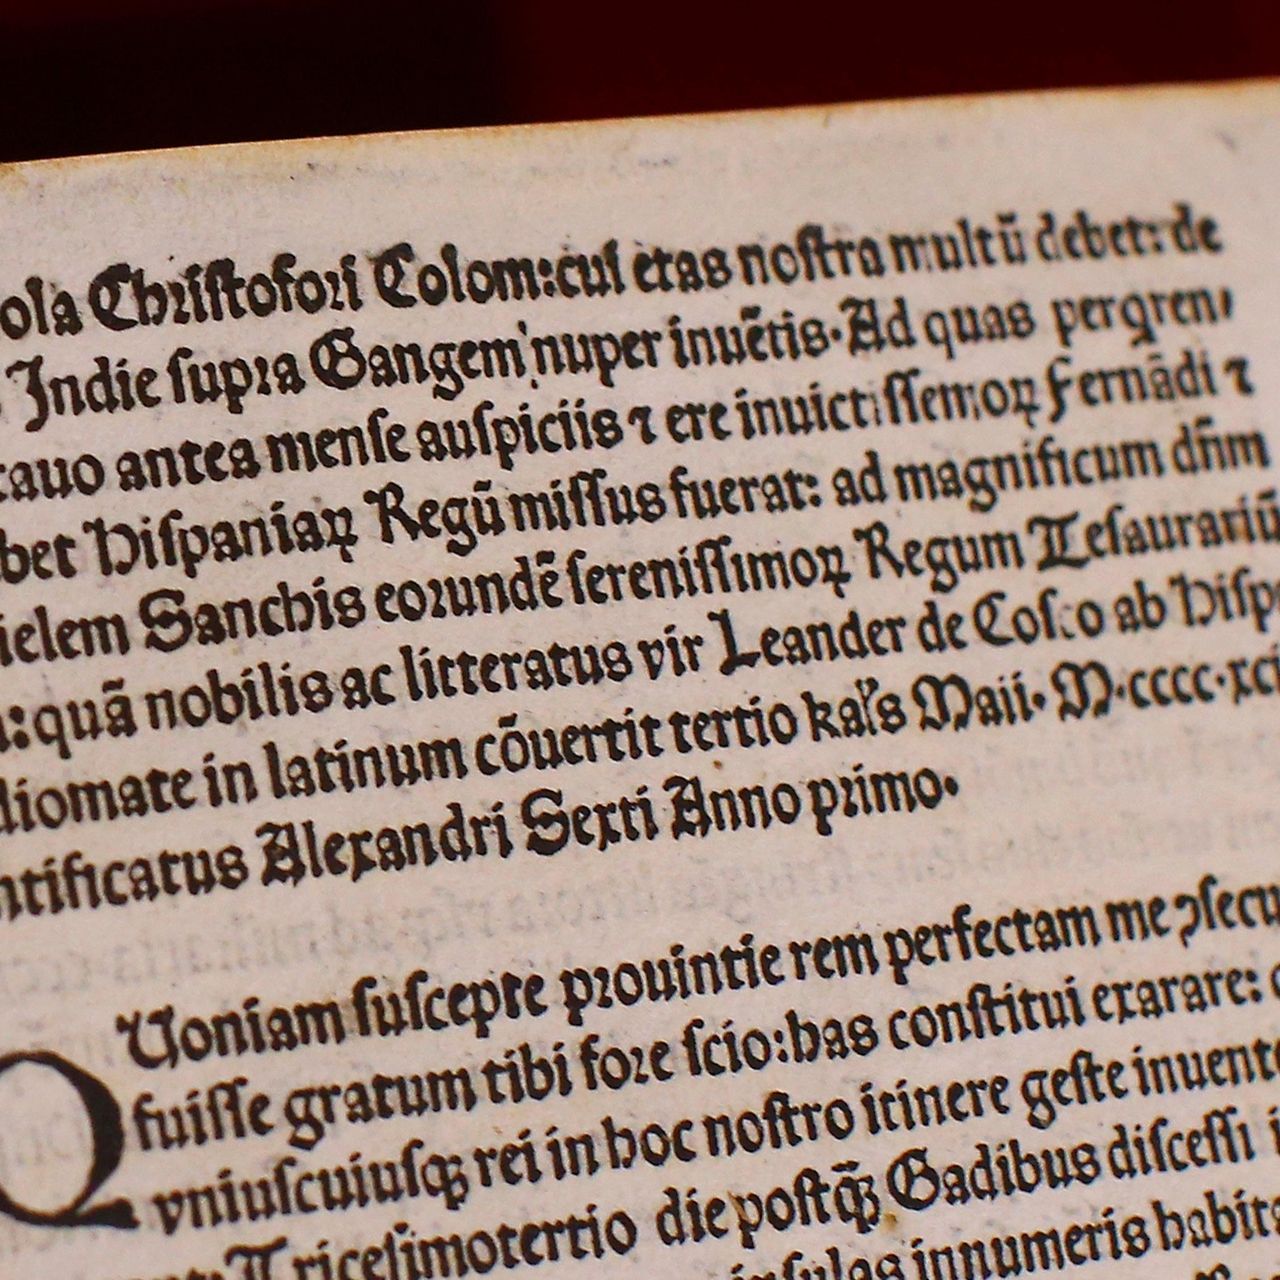 ola Chriſtofori Colom: cui etas noſtra multū debet: de
Indie ſupra Gangem nuper inuētis. Ad quas perqren
tauo antea menſe auſpiciis ⁊ ere inuictiſſemoꝝ Fernādi ⁊
bet Hiſpaniaꝝ Regū miſſus fuerat: ad magnificum dn̄m
ielem Sanchis eorundē ſereniſſimoꝝ Regum Teſaurariū
: quā nobilis ac litteratus vir Leander de Coſco ab Hiſp
diomate in latinum cōuertit tertio kal's Maii. M.cccc.xci
ntificatus Alexandri Sexti Anno primo.
QUoniam ſuſcepte prouintie rem perfectam me ꝯſecu
fuiſſe gratum tibi fore ſcio: has conſtitui exarare:
vniuſcuiuſqꝫ rei in hoc noſtro itinere geſte inuent
Triceſimotertio die poſtqꝫ̄ Gadibus diſceſſi
inſulas innumeris habit